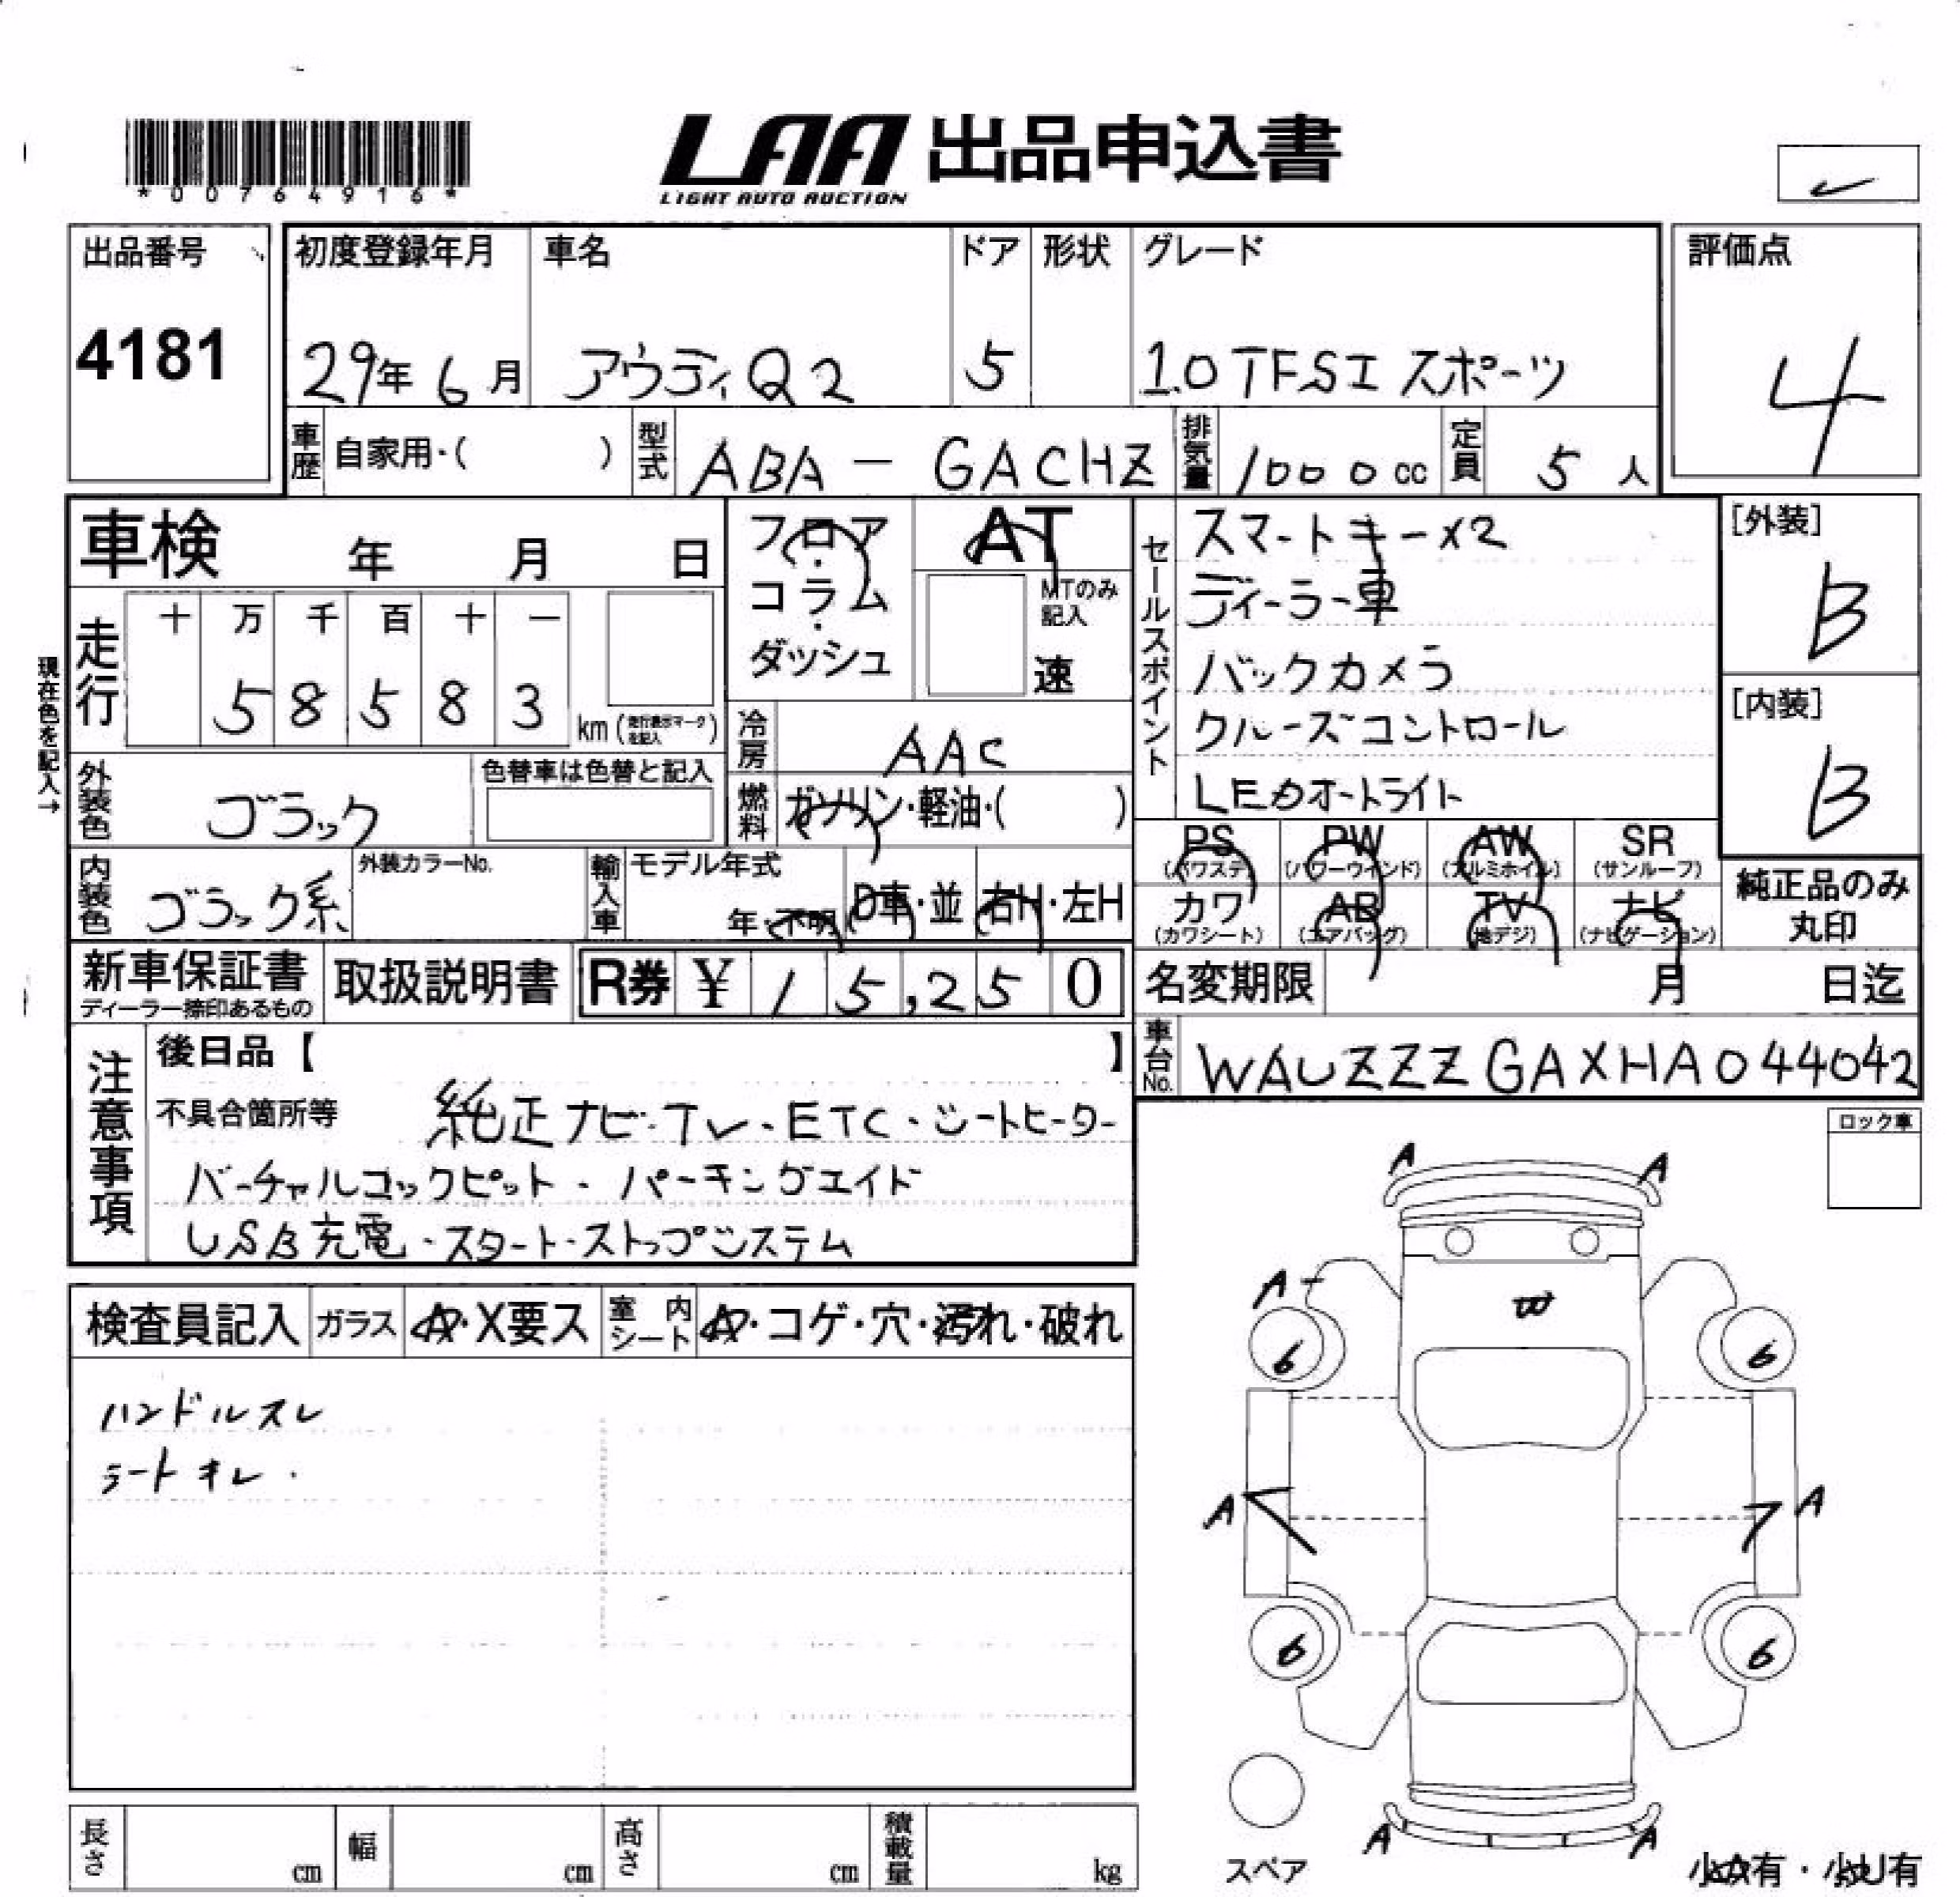 *00764916*
LAA 出品申込書
LIGHT AUTO AUCTION
出品番号
4181
初度登録年月
29年 6月
車名
アウディ Q2
ドア
5
形状
グレード
1.0 TFSI スポーツ
評価点
4
車歴 自家用・( )
型式 ABA - GACHZ
排気量 1000 cc
定員 5 人
車検 年 月 日
フロア・コラム・ダッシュ
AT
MTのみ記入
速
セールスポイント
スマートキー×2
ディーラー車
バックカメラ
クルーズコントロール
LEDオートライト
[外装]
B
[内装]
B
現在色を記入→
走行
十 万 千 百 十 一
5 8 5 8 3
km (走行表示マークを記入)
冷房 AAC
燃料 ガソリン・軽油・( )
外装色 ブラック
色替車は色替と記入
内装色 ブラック系
外装カラーNo.
輸入車
モデル年式
年・不明
D車・並
右H・左H
PS (パワステ)
PW (パワーウインド)
AW (アルミホイル)
SR (サンルーフ)
カワ (カワシート)
AB (エアバッグ)
TV (地デジ)
ナビ (ナビゲーション)
純正品のみ
丸印
新車保証書
ディーラー捺印あるもの
取扱説明書
R券 ¥ 15,250
名変期限 月 日迄
車台No. WAUZZZGAXHA044042
注意事項
後日品【 】
不具合箇所等 純正ナビ・TV・ETC・シートヒーター
バーチャルコックピット・パーキングエイド
USB充電・スタート・ストップシステム
ロック車
検査員記入
ガラス A・X要ス
室内シート A・コゲ・穴・汚れ・破れ
ハンドルスレ
シートキレ.
A A
A
W
6 6
A A
6 6
A A
スペア
小A有・小U有
長さ cm
幅 cm
高さ cm
積載量 kg